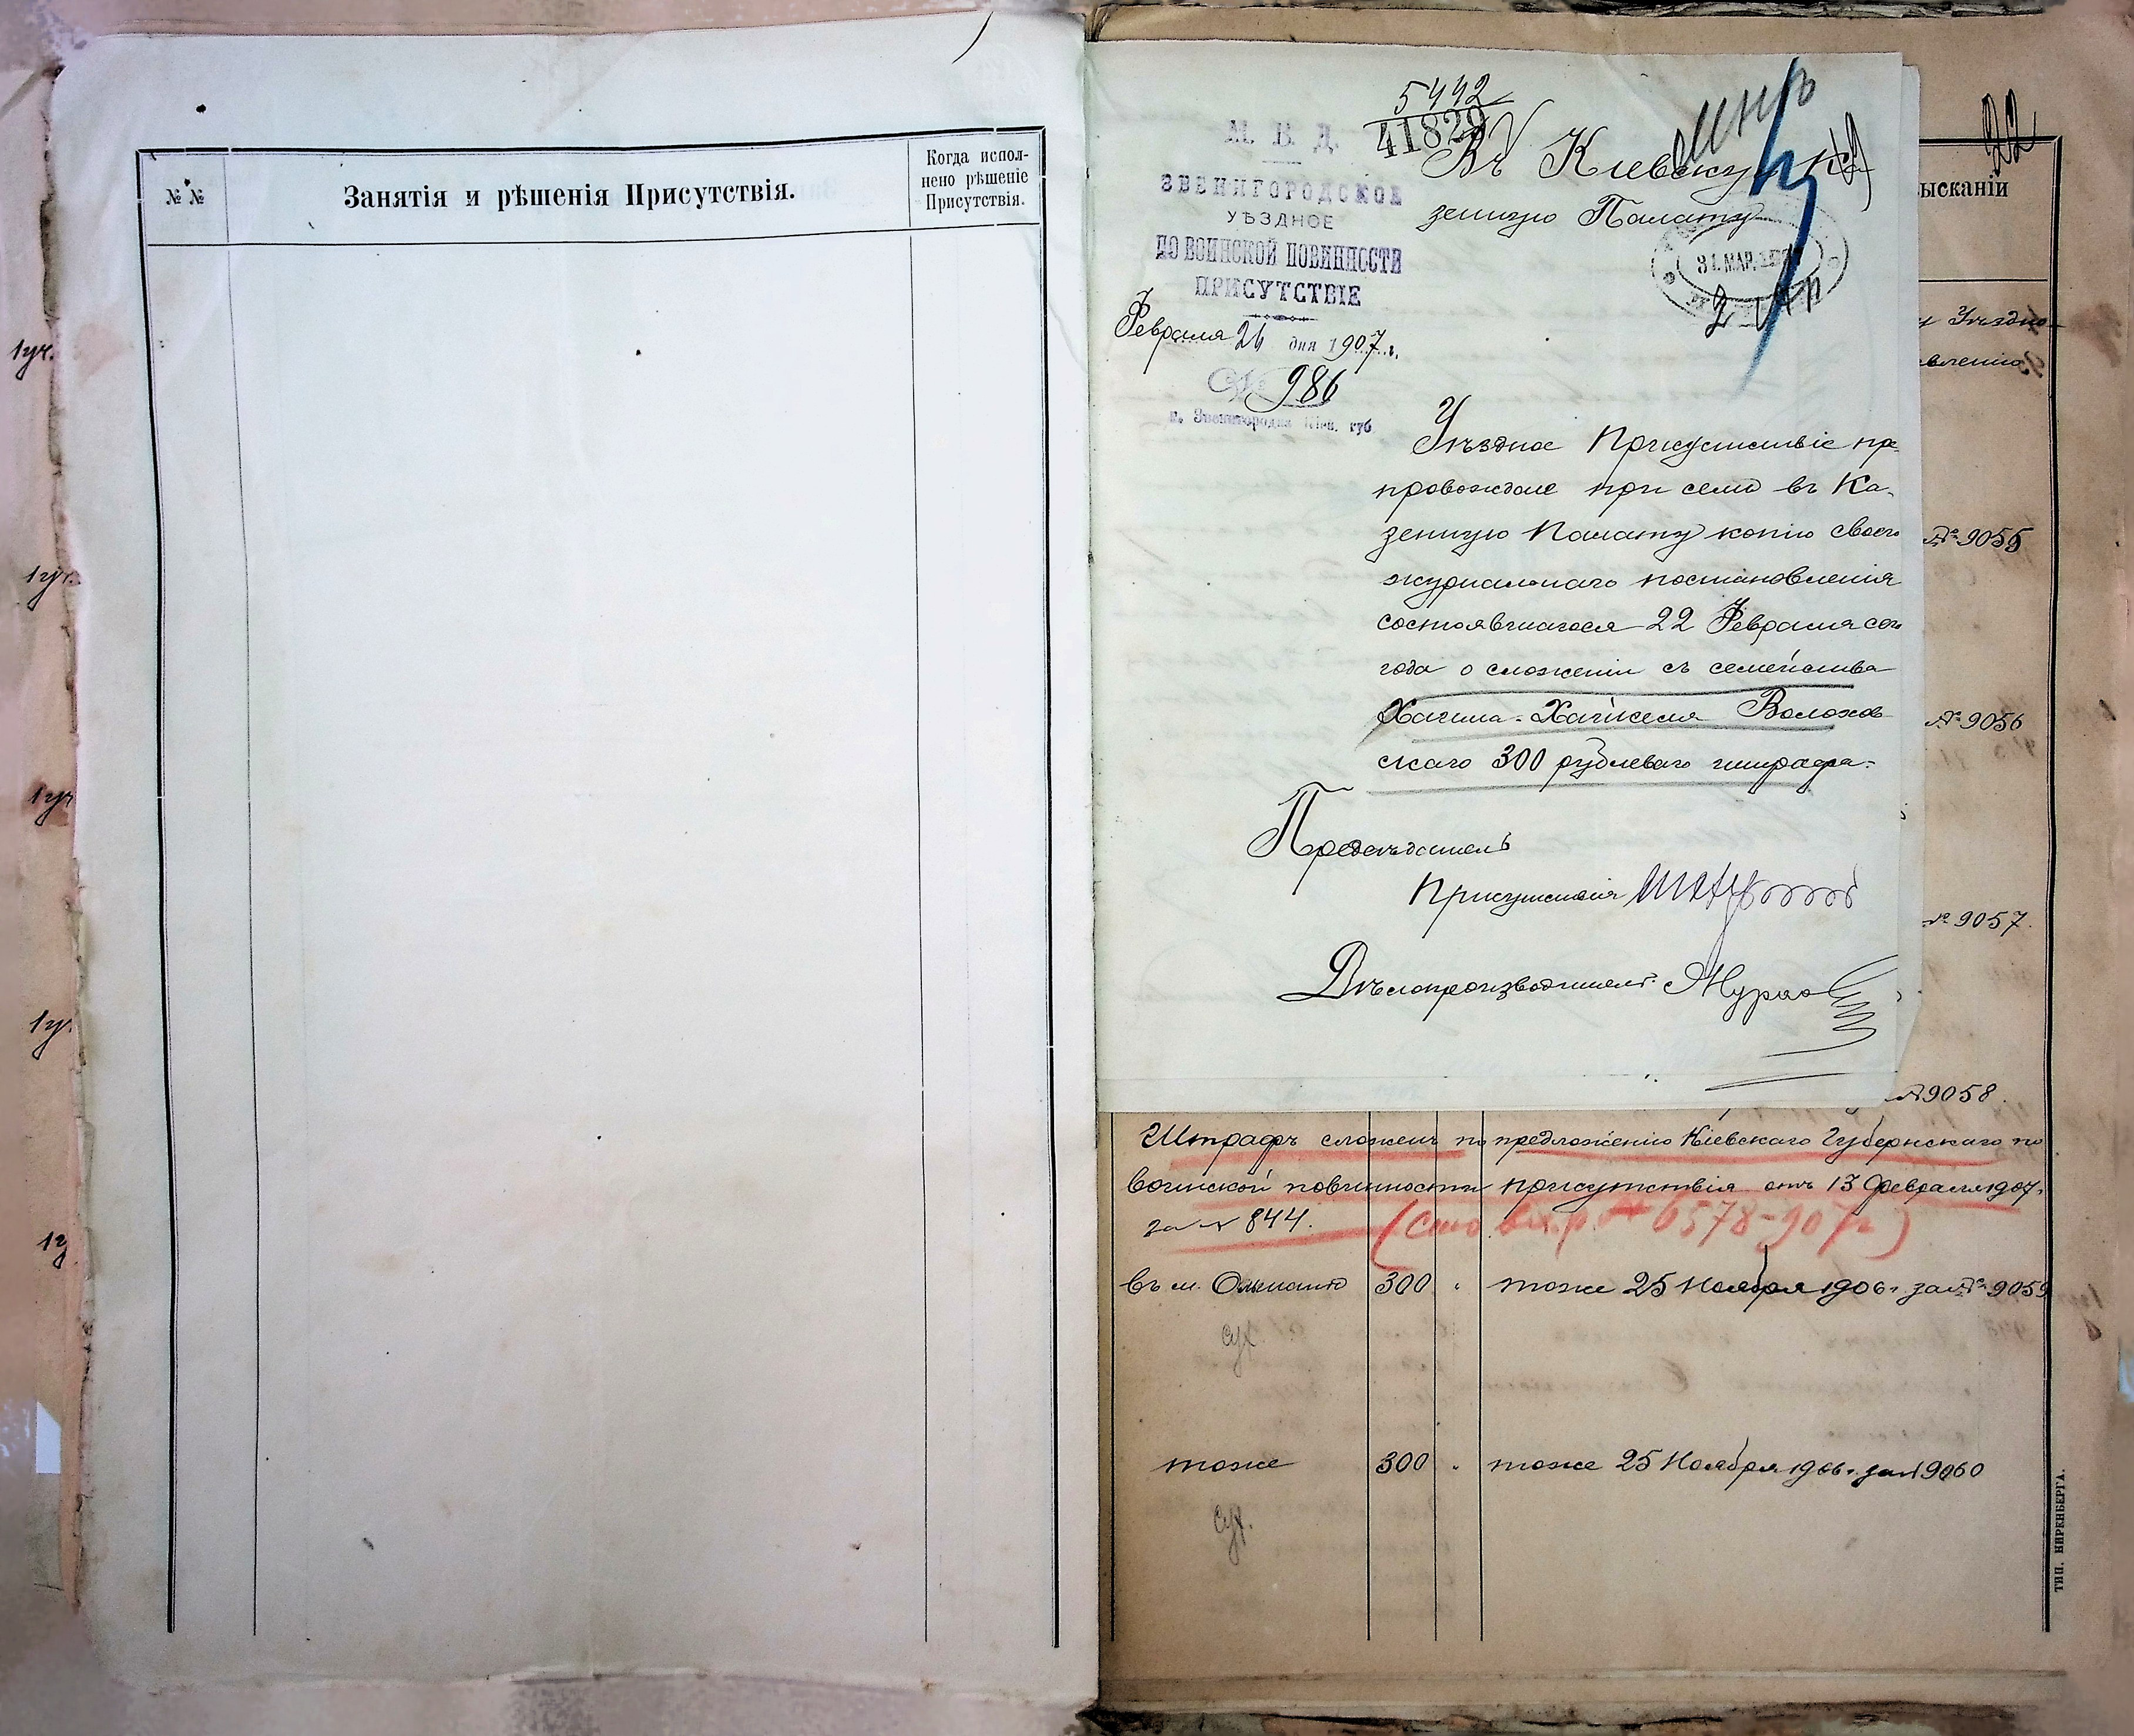 1уч.
1уч.
1уч
1уч.
№ №
Занятія и рѣшенія Присутствія.
Когда испол-
нено рѣшеніе
Присутствія.
5442
41829
22
М. В. Д.
ЗВЕНИГОРОДСКОЕ
УѢЗДНОЕ
ПО ВОИНСКОЙ ПОВИННОСТИ
ПРИСУТСТВІЕ
Февраля 26 дня 1907 г.
№ 986
г. Звенигородка Кіев. губ.
Въ Кіевскую Ка
зенную Палату
31 МАР. 1907
2
Уѣздное Присутствіе пре
провождая при семъ въ Ка-
зенную Палату копію своего
журнальнаго постановленія
состоявшагося 22 Февраля сего
года о сложеніи съ семейства
Хаима-Хаикеля Волохов
скаго 300 рублеваго штрафа.
Предсѣдатель
Присутствія
Дѣлопроизводитель
ысканіи
Уѣздно
вленію
№ 9055
№ 9056
№ 9057.
№ 9058.
Штрафъ сложенъ по предложенію Кіевскаго Губернскаго по
воинской повинности присутствія отъ 13 Февраля 1907 г.
за № 844. 6578-907г)
въ м. Ольшанѣ 300 " тоже 25 Ноября 1906 г. за № 9059
тоже 300 " тоже 25 Ноября 1906 г. за № 9060
ТИП. НИРЕНБЕРГА.